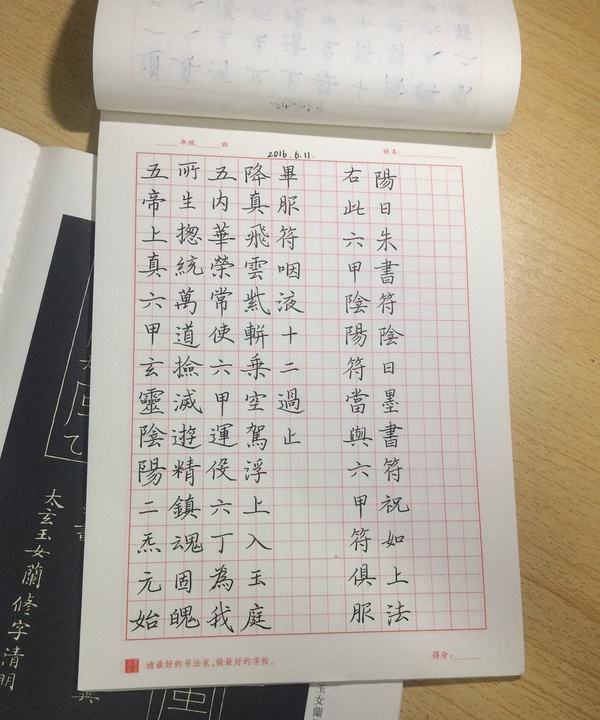 年级 班
2016.6.11.
姓名:
五帝上真六甲玄靈陰陽二炁元始
所生揔統萬道撿滅遊精鎮魂固魄
五内華榮常使六甲運役六丁為我
降真飛雲紫軿乗空駕浮上入玉庭
畢服符咽液十二過止
右此六甲陰陽符當與六甲符俱服
陽日朱書符陰日墨書符祝如上法
请最好的书法家,做最好的字帖。
得分:
太玄玉女蘭修字清明
玉女蘭